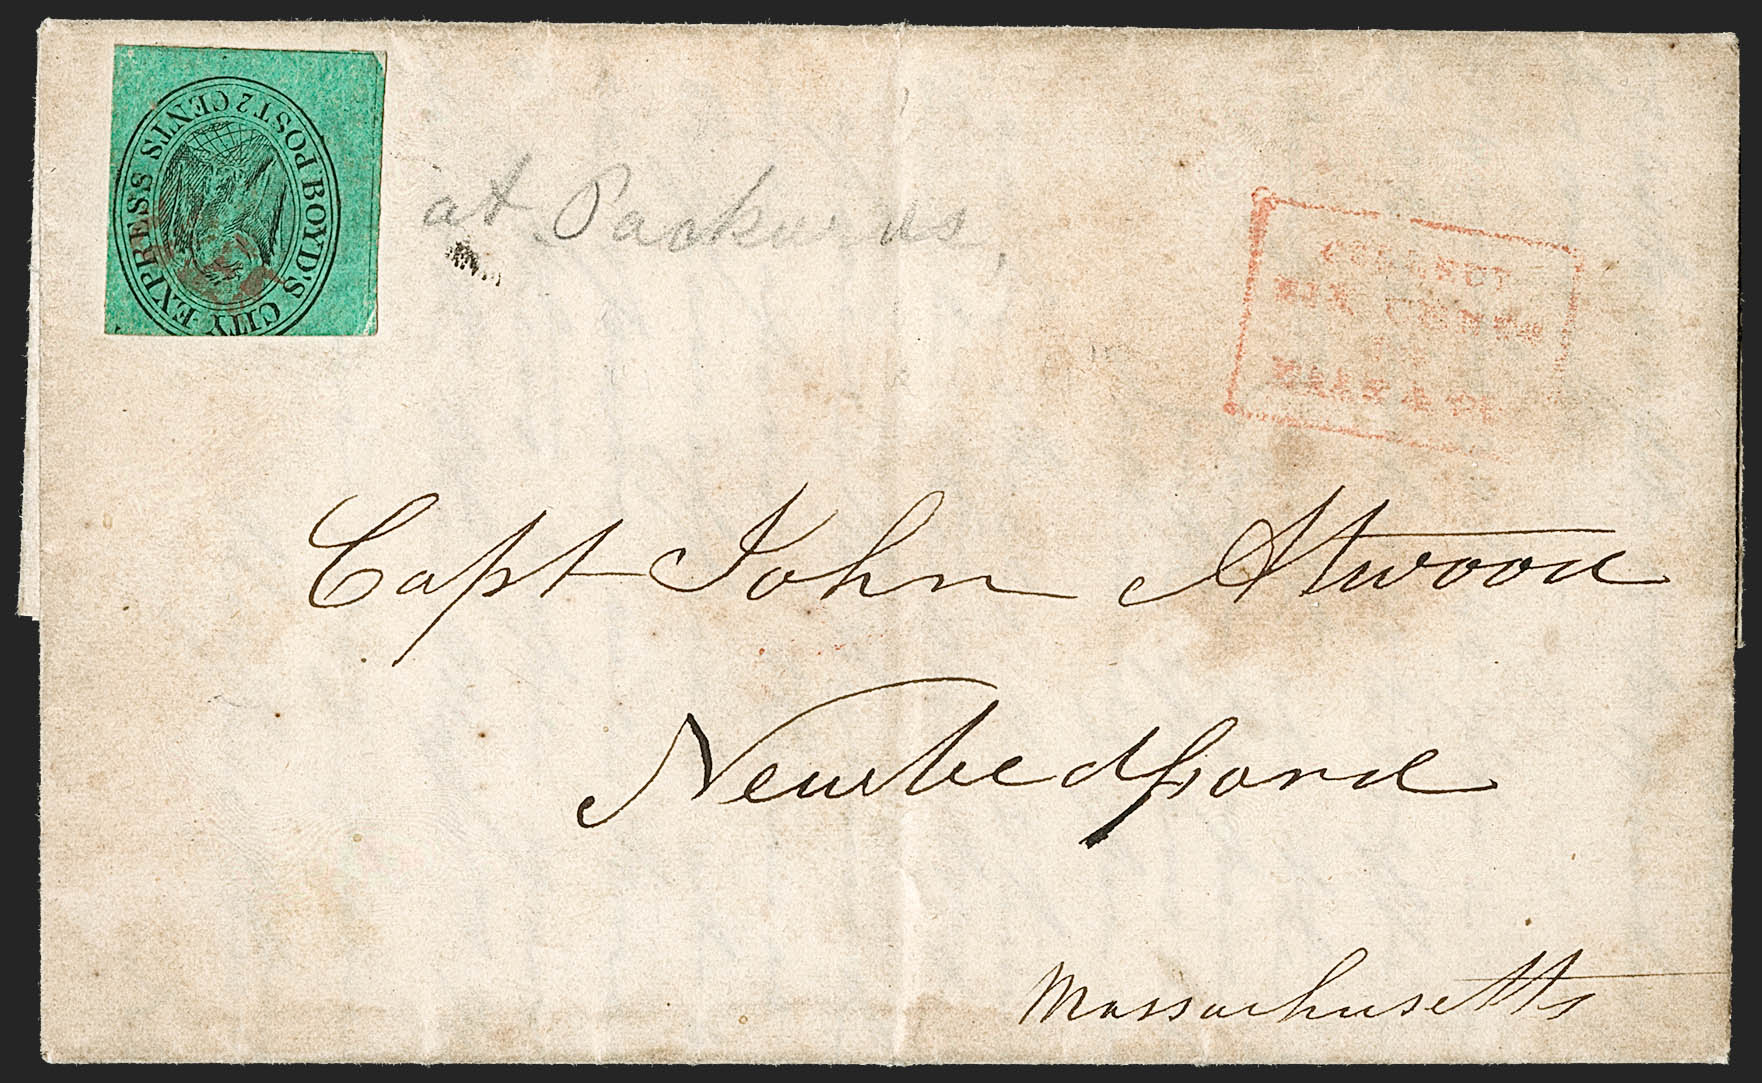 BOYD'S CITY EXPRESS POST 2 CENTS
at Packwoods,
COLLECT
SIX CENTS
HALE & Co
Capt John Atwood
Newbedford
Massachusetts